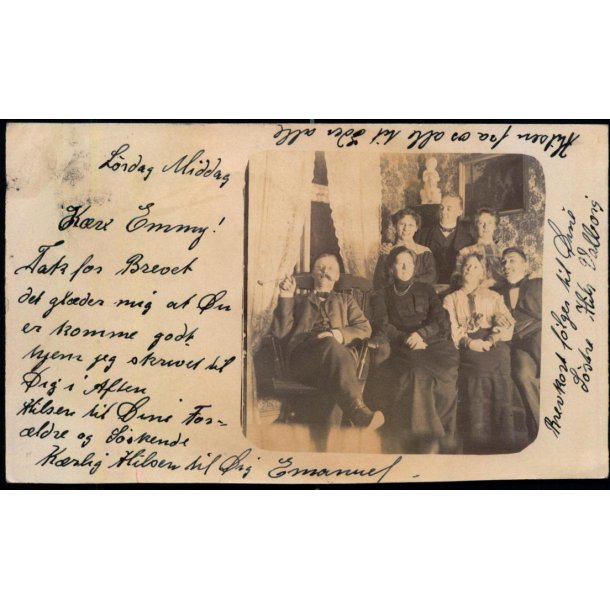 Lördag Middag
Kære Emmy!
Tak for Brevet
det glæder mig at Du
er komme godt
hjem jeg skrivet til
Dig i Aften
Hilsen til Dine For-
ældre og Söskende
Kærlig Hilsen til Dig Emanuel
Hilsen fra os alle til Eder alle
Brevkort følger til Dine
Söstre Valborg